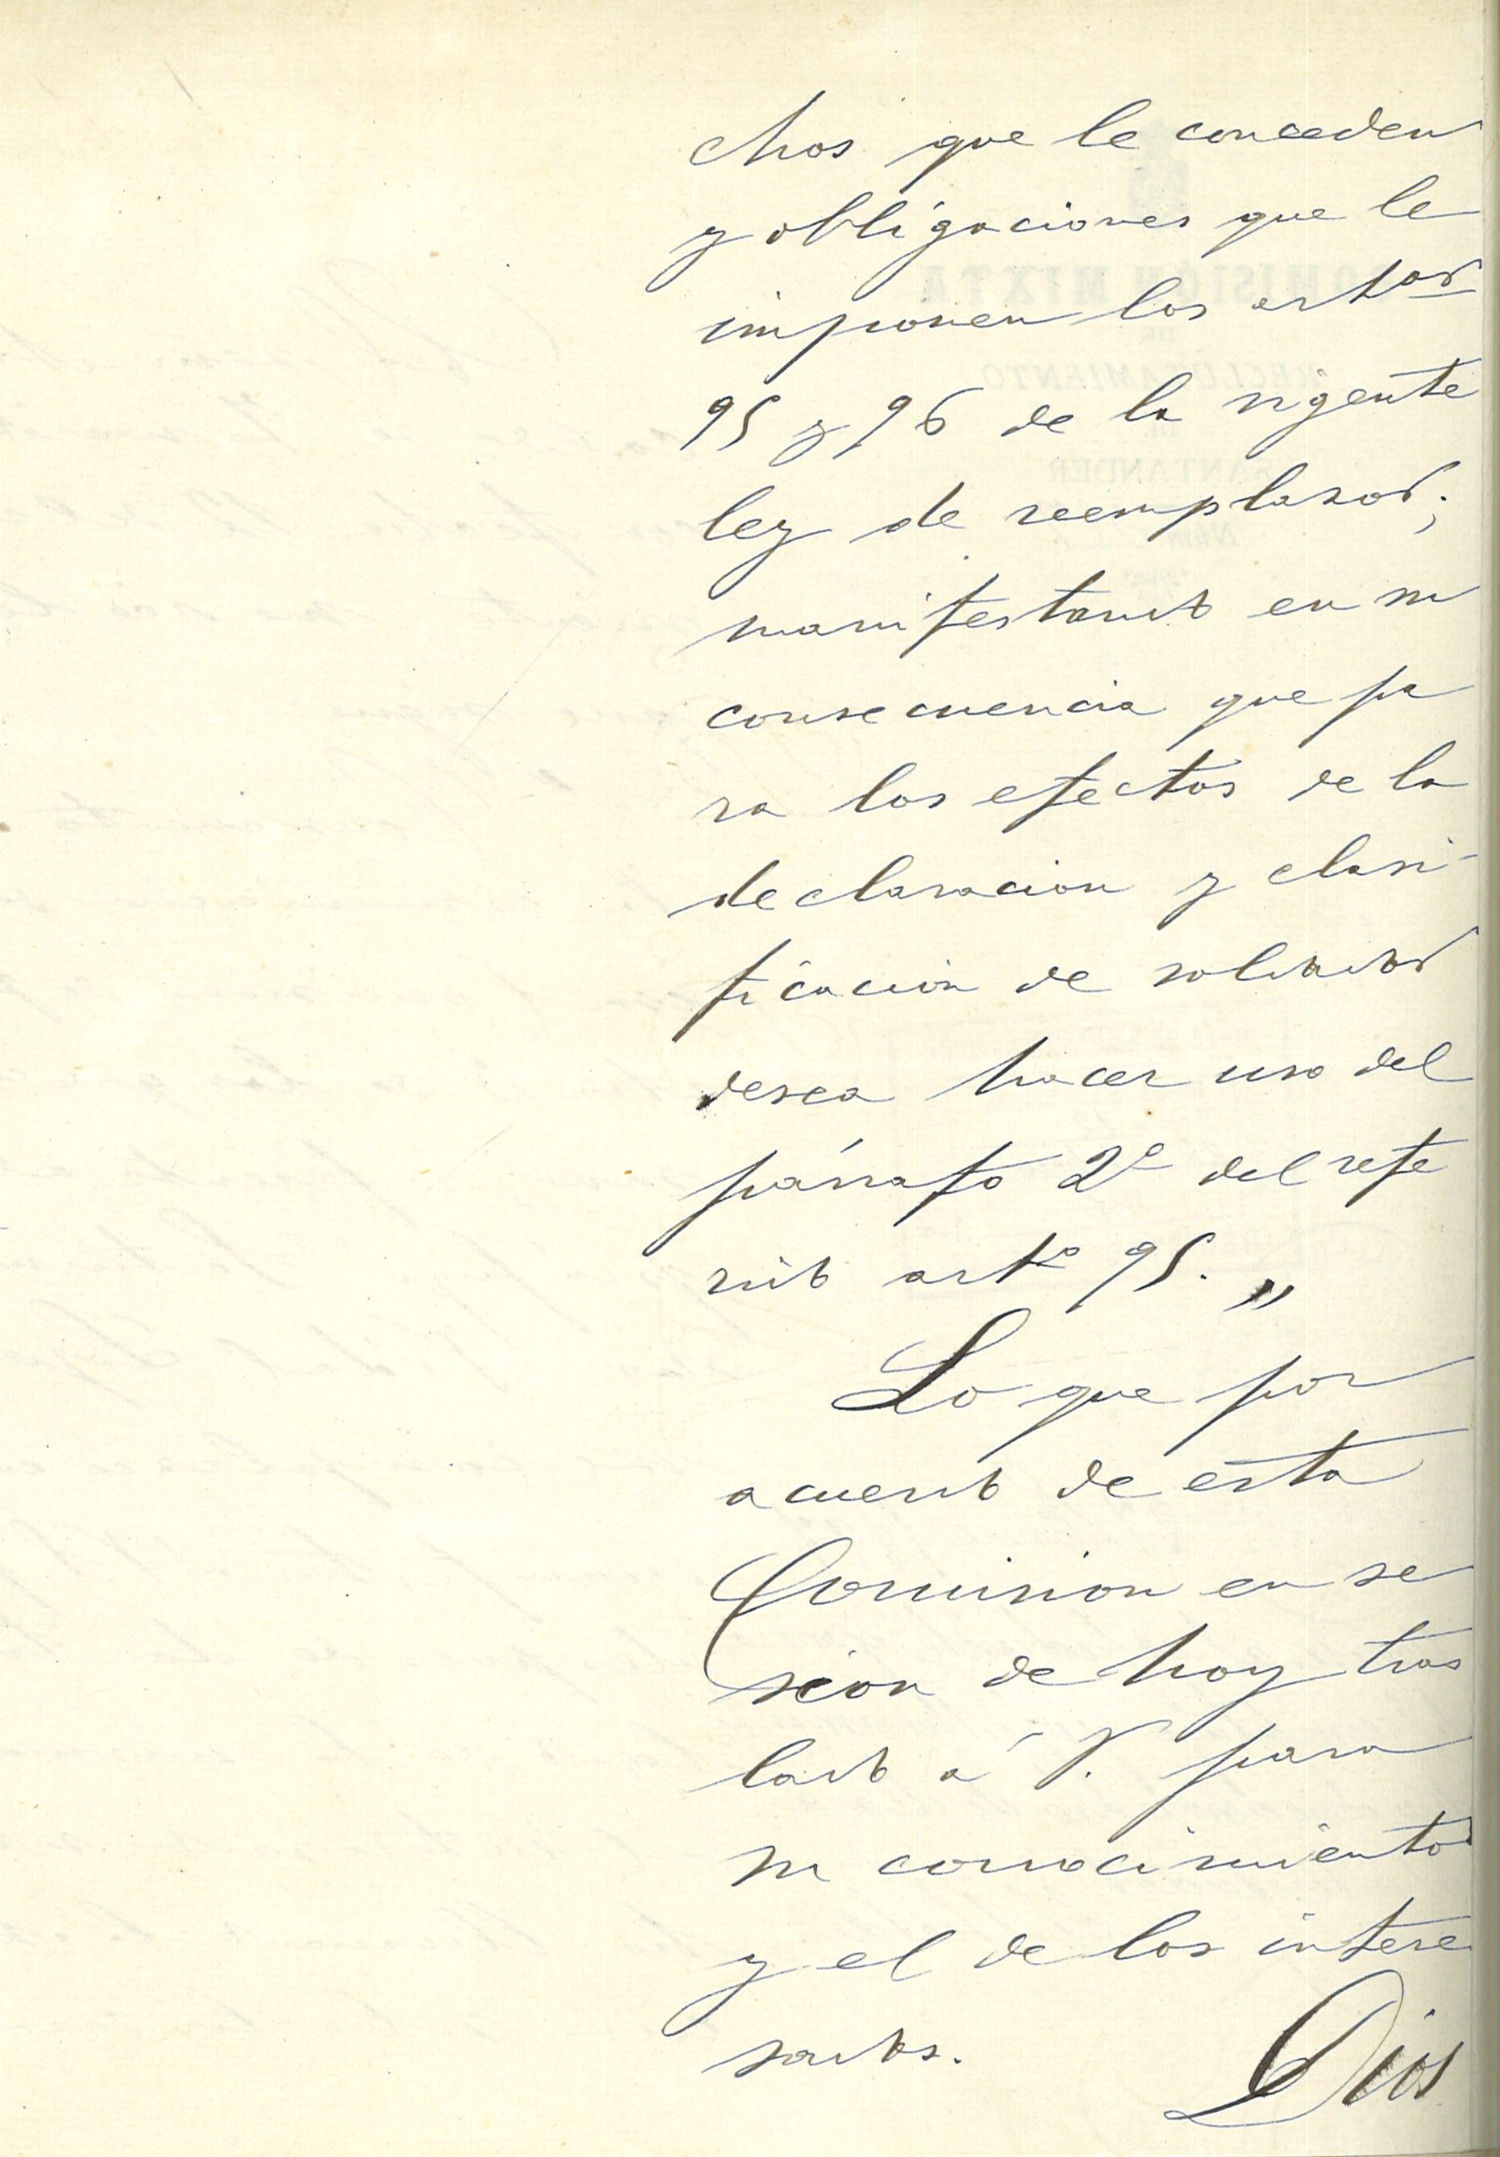 chos que le conceden
y obligaciones que le
imponen los artos
95 y 96 de la vigente
ley de reemplasos;
manifestando en su
consecuencia que pa
ra los efectos de la
declaracion y clasi-
ficación de soldados
desea hacer uso del
párrafo 2º del refe
rido artº 95. „
Lo que por
acuerdo de esta
Comision en se
sion de hoy tras
lado á V. para
su conocimiento
y el de los intere
sados.
Dios
COMISIÓN MIXTA
DE
RECLUTAMIENTO
DE
SANTANDER